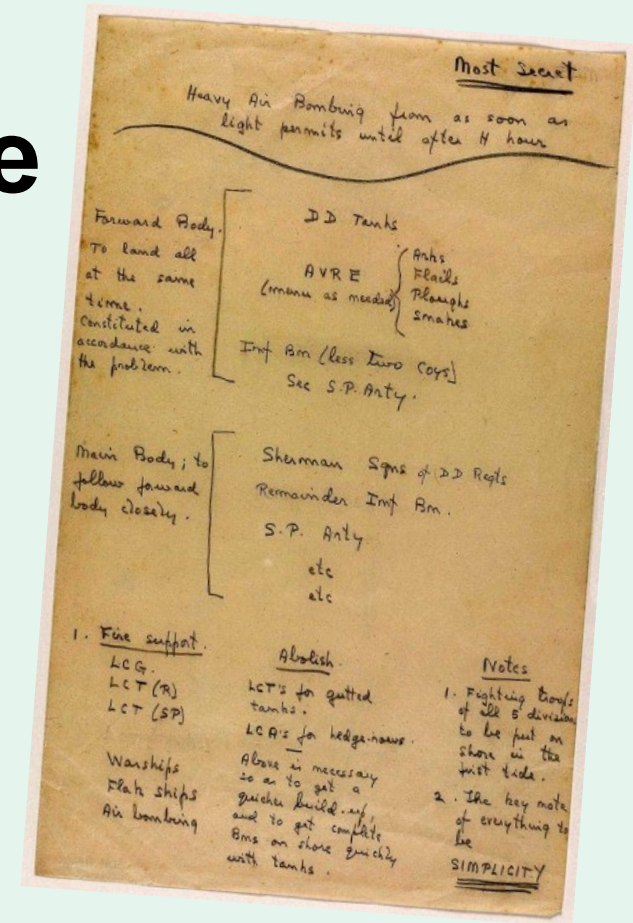 e
Most Secret
Heavy Air Bombing from as soon as
light permits until after H hour
Forward Body.
To land all
at the same
time.
Constituted in
accordance with
the problem.
DD Tanks
AVRE
(menu as needed)
Arks
Flails
Ploughs
Snakes
Inf Bn (less two Coys)
Sec S.P. Arty.
Main Body; to
follow forward
body closely.
Sherman Sqns of DD Regts
Remainder Inf Bn.
S.P. Arty
etc
etc
1. Fire support.
LCG.
LCT (R)
LCT (SP)
Warships
Flak ships
Air bombing
Abolish.
LCT's for gutted
tanks.
LCA's for hedge-rows.
Above is necessary
so as to get a
quicker build-up,
and to get complete
Bns on shore quickly
with tanks.
Notes
1. Fighting troops
of all 5 divisions
to be put on
shore in the
first tide.
2. The key note
of everything to
be
SIMPLICITY